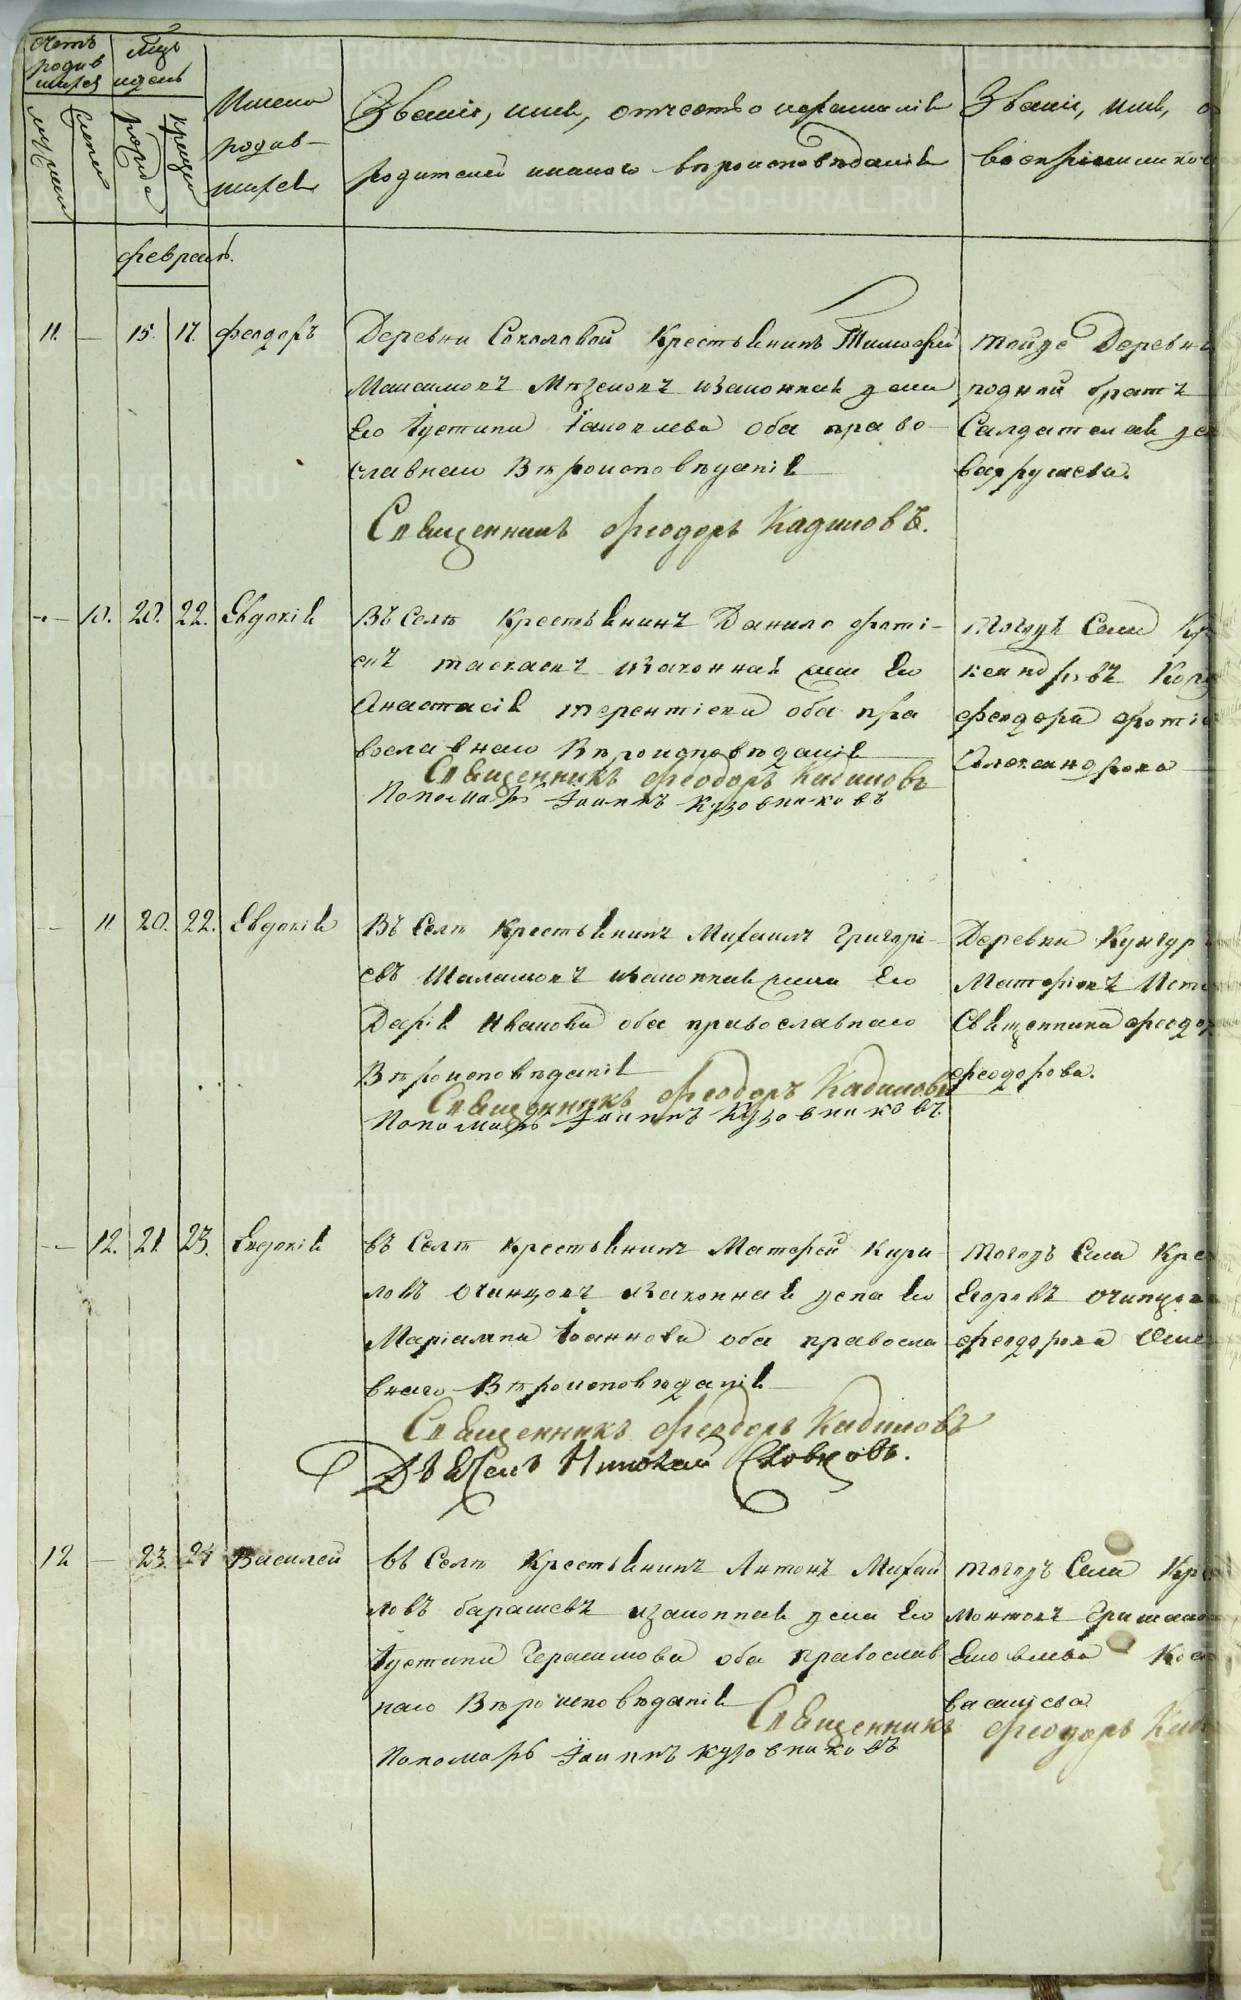 Счетъ родив шихся
Мцъ идень
Имена родив- шихся
Званіе, имя, отчество ифамилія
родителей икакого вѣроисповѣданія
Званіе, имя, о
восприемников
мужеска
женска
рожде
креще
февраль.
11. — 15. 17. Феодоръ
Деревни Соколовой Крестьянинъ Тимофей
изаконная жена
Его Іустина Іаковлева Оба право-
славнаго Вѣроисповѣданія
Священникъ Феодоръ Кадиловъ.
тойде Деревни
родной братъ
Салдатская
Вахрушева.
— 10. 20. 22. Евдокія
Въ Селѣ Крестьянинъ Данило Фоті-
евъ изаконная жена Его
Анастасія терентіева оба пра
вославнаго Вѣроисповѣданія
Священникъ Феодоръ Кадиловъ
Пономарь Іоаннъ Кузовниковъ
тогодъ Села Кр
Феодора Фоті
Александрова
— 11 20. 22. Евдокія
Въ Селѣ Крестьянинъ Михаилъ Григорі-
евъ Шаламовъ изаконная жена Его
Дарія Иванова оба православнаго
Вѣроисповѣданія
Священникъ Феодоръ Кадиловъ
Пономарь Іоаннъ Кузовниковъ.
Деревни Кунгур
Священника Феодор
Феодорова.
— 12. 21. 23. Евдокія
въ Селѣ Крестьянинъ Матфей Кири
ловъ Очинцовъ изаконная жена Его
Маріамна Іоаннова оба правосла
внаго Вѣроисповѣданія
Священникъ Феодоръ Кадиловъ
Дьячекъ Николай Словцовъ.
тогодъ Села Крес
Егоровъ Очинцов
Феодорова
12 — 23. 24 Василей
въ Селѣ Крестьянинъ Антонъ Михай
ловъ барашевъ изаконная жена Его
Іустина Герасимова оба православ
наго Вѣроисповѣданія
Священникъ Феодоръ Кад
Пономарь Іоаннъ Кузовниковъ
тогодъ Села Кре
Васильева
METRIKI.GASO-URAL.RU